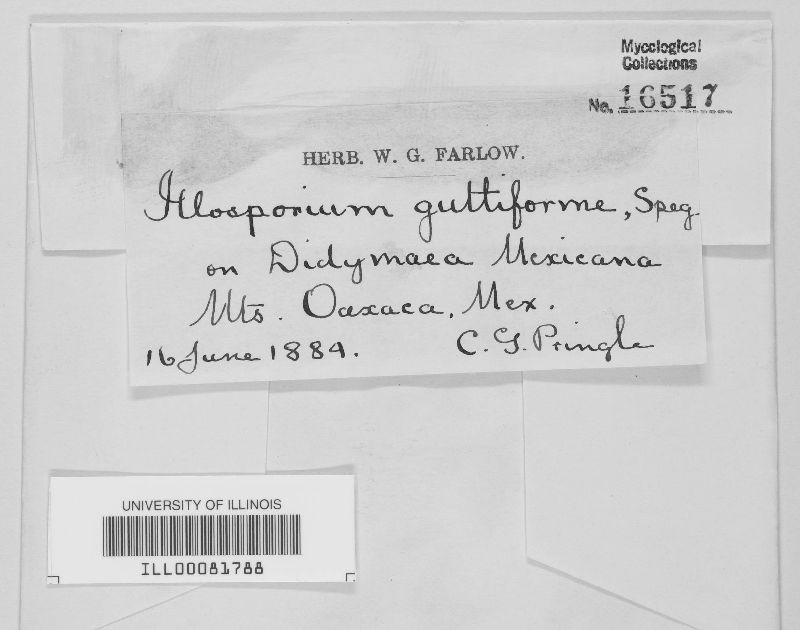 Mycological
Collections
No. 16517
HERB. W. G. FARLOW.
Illosporium guttiforme, Speg
on Didymaea Mexicana
Mts. Oaxaca, Mex.
16 June 1884. C. G. Pringle
UNIVERSITY OF ILLINOIS
ILL00081788